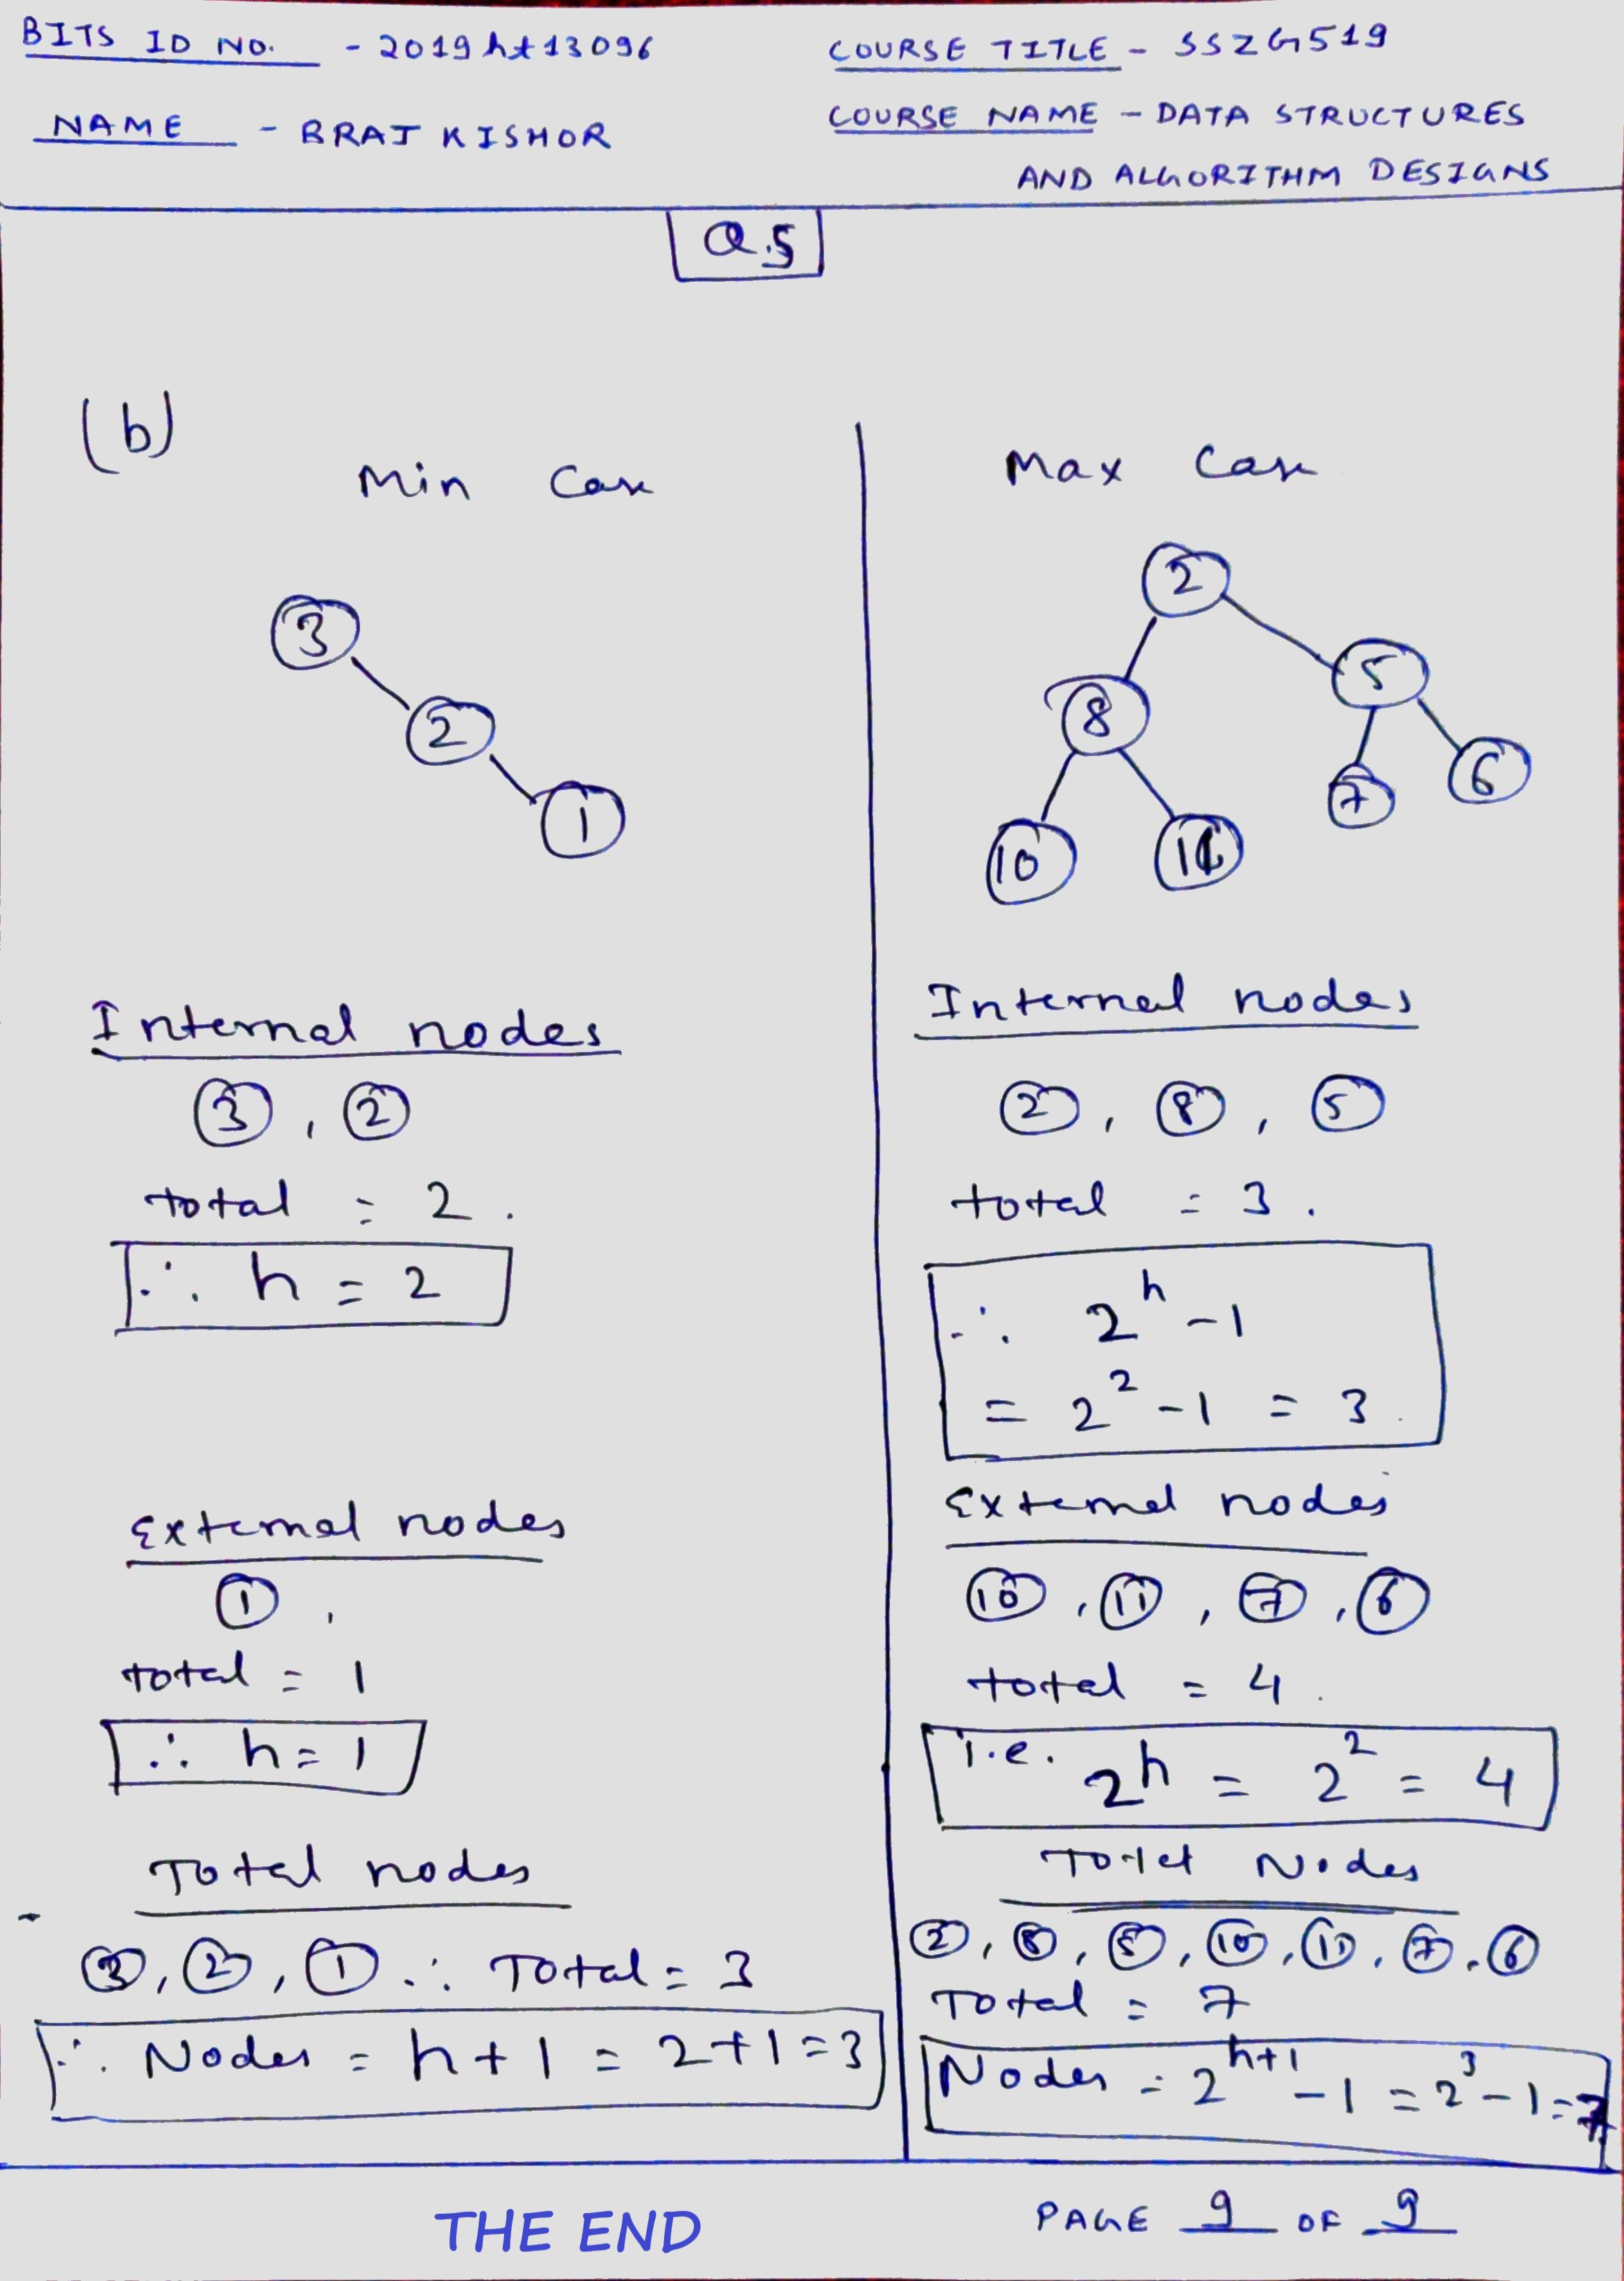 BITS ID NO. - 2019ht13096
NAME - BRAJ KISHOR
COURSE TITLE - SSZG519
COURSE NAME - DATA STRUCTURES
AND ALGORITHM DESIGNS
Q.5
(b)
Min Case
3
2
1
Internal nodes
3, 2
total = 2.
∴ h = 2
External nodes
1,
total = 1
∴ h = 1
Total nodes
3, 2, 1 ∴ Total = 3
∴ Nodes = h+1 = 2+1=3
Max Case
2
8 5
10 11 7 6
Internal nodes
2, 8, 5
total = 3.
∴ 2^h - 1
= 2^2 - 1 = 3.
External nodes
10, 11, 7, 6
total = 4.
i.e. 2^h = 2^2 = 4
Total Nodes
2, 8, 5, 10, 11, 7, 6
Total = 7
Nodes = 2^(h+1) - 1 = 2^3 - 1 = 7
THE END
PAGE 9 OF 9